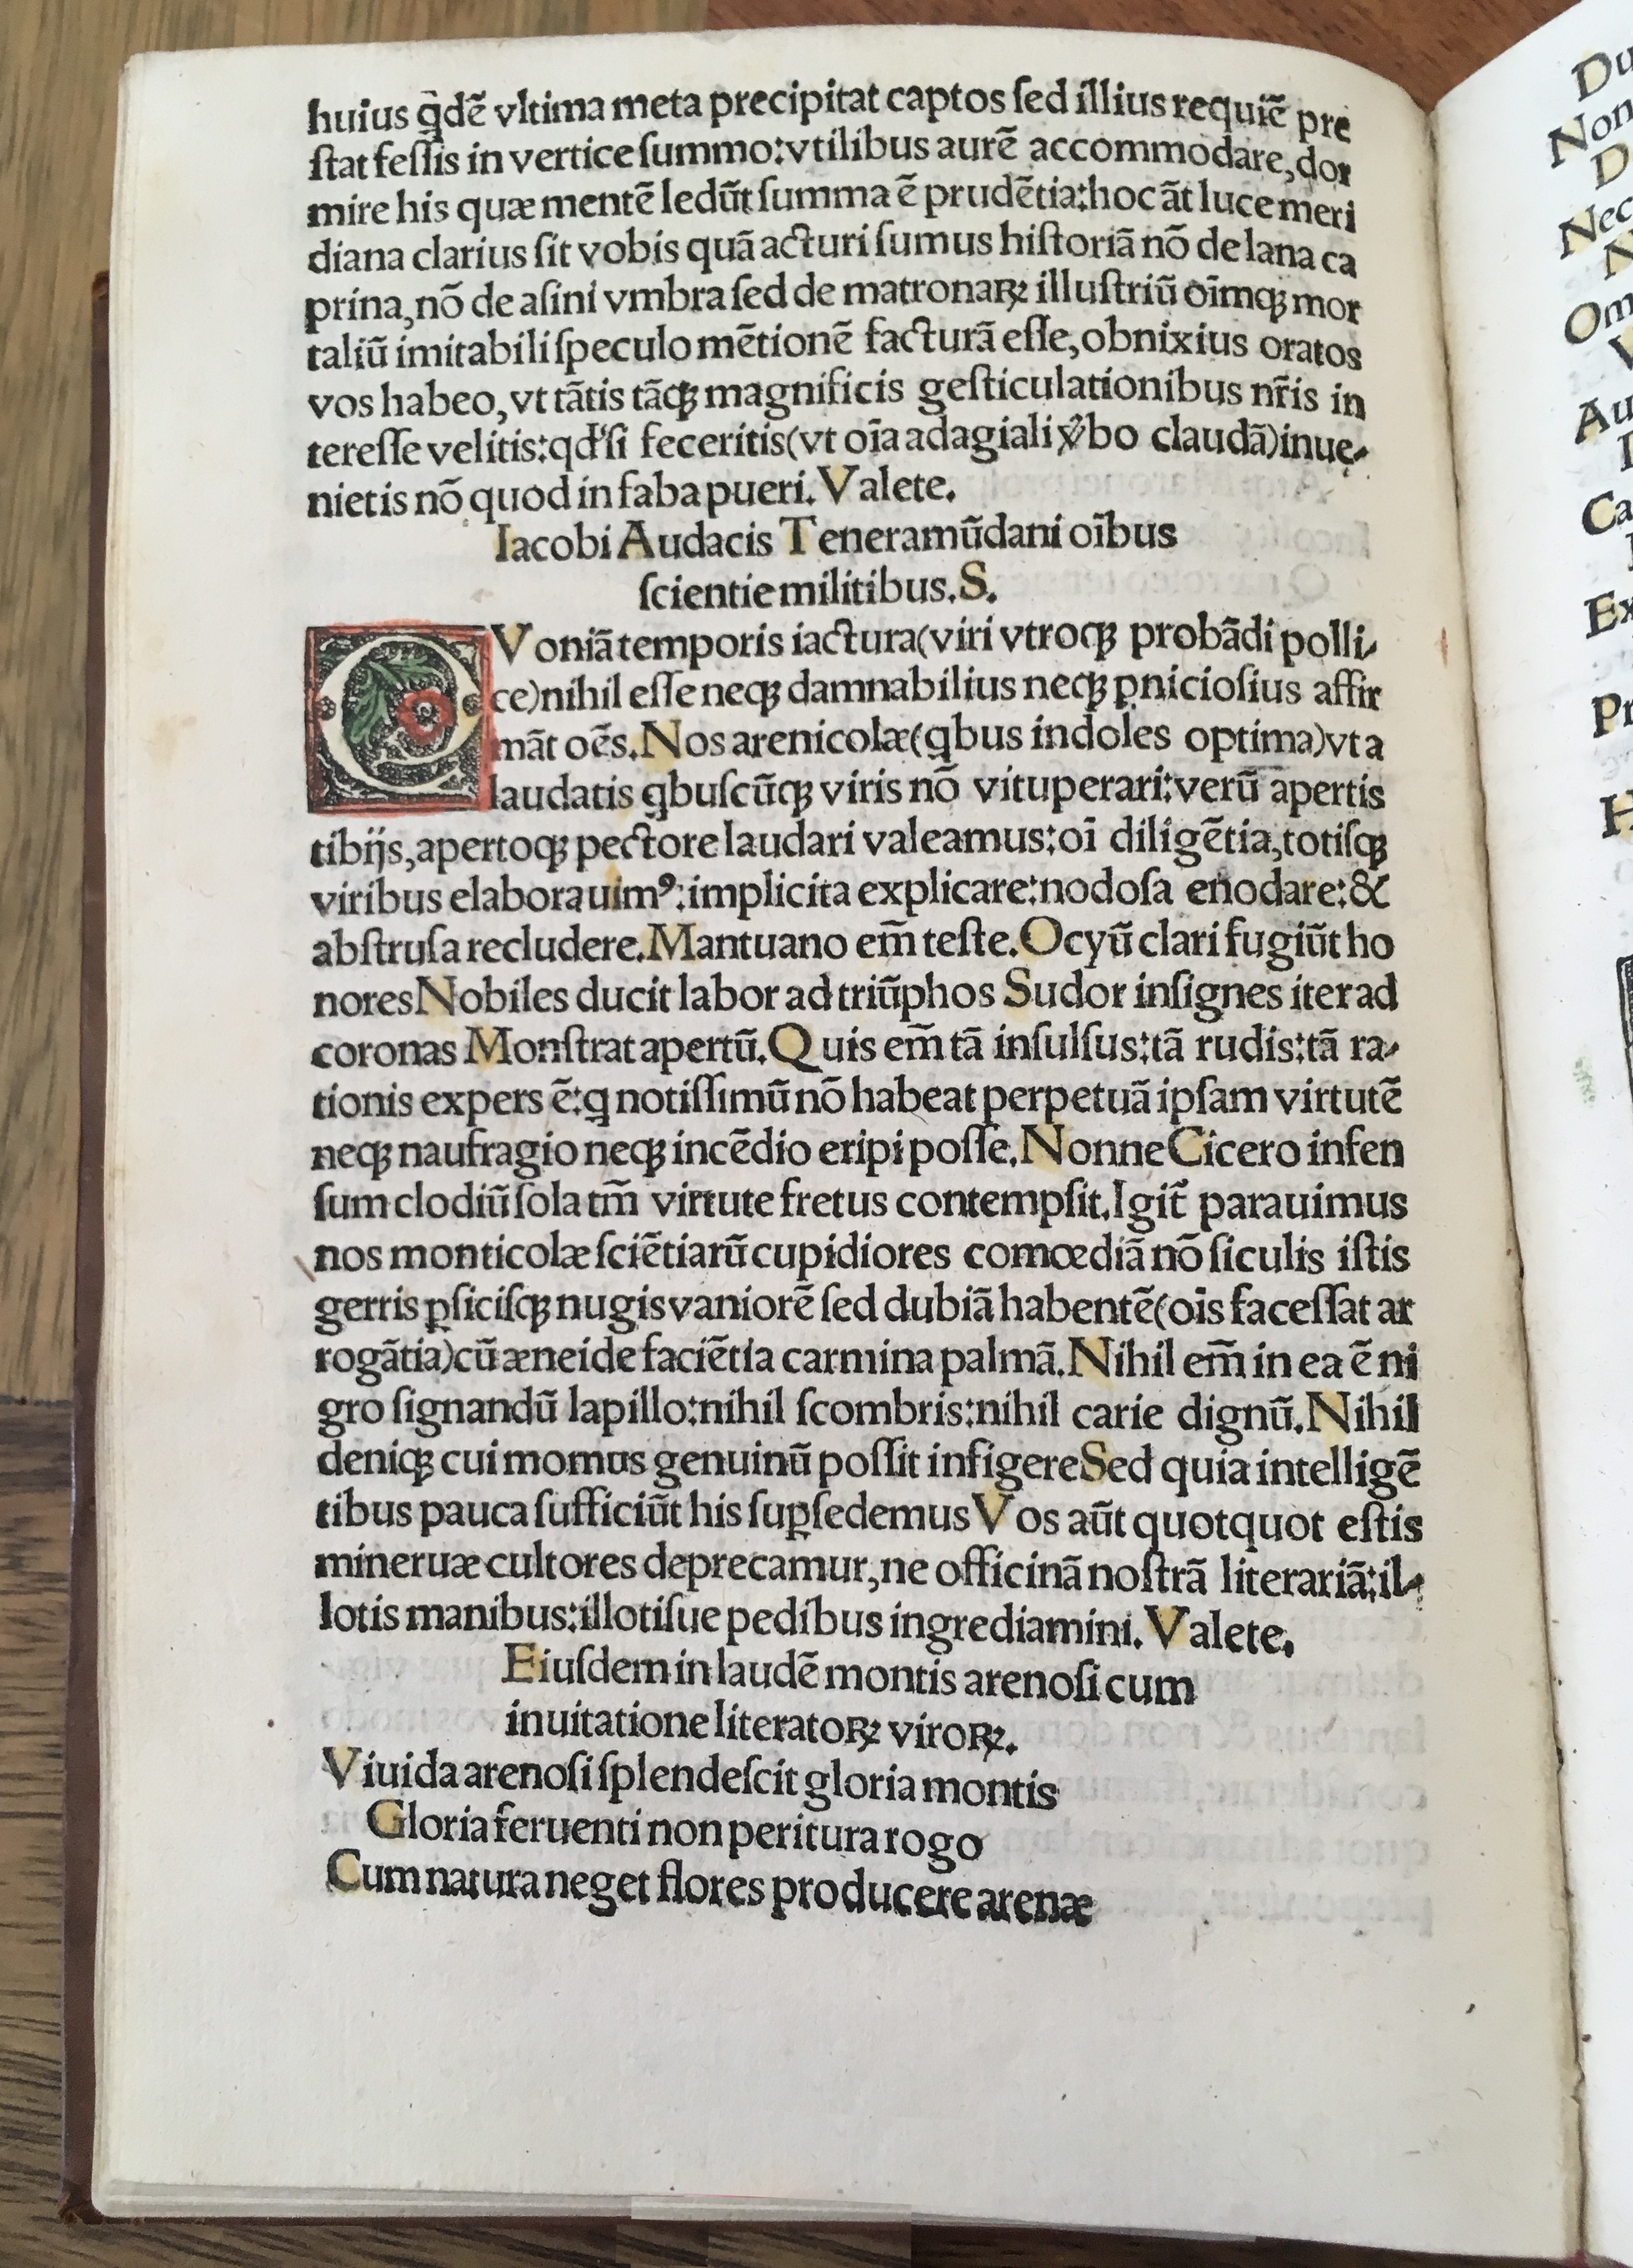 huius q̄dē vltima meta precipitat captos ſed illius requiē pre
ſtat feſſis in vertice ſummo:vtilibus aurē accommodare,dor
mire his quæ mentē ledūt ſumma ē prudētia:hoc āt luce meri
diana clarius ſit vobis quā acturi ſumus hiſtoriā nō de lana ca
prina,nō de aſini vmbra ſed de matronaꝝ illuſtriū oīmqꝫ mor
taliū imitabili ſpeculo mētionē facturā eſſe,obnixius oratos
vos habeo,vt tātis tāqꝫ magnificis geſticulationibus nr̄is in
tereſſe velitis:qd'ſi feceritis(vt oīa adagiali v̾bo claudā)inue-
nietis nō quod in faba pueri.Valete.
Iacobi Audacis Teneramūdani oībus
ſcientie militibus.S.
QVoniā temporis iactura(viri vtroqꝫ probādi polli-
ce)nihil eſſe neqꝫ damnabilius neqꝫ ꝑnicioſius affir
māt oēs.Nos arenicolæ(qbus indoles optima)vt a
laudatis qbuſcūqꝫ viris nō vituperari:verū apertis
tibijs,apertoqꝫ pectore laudari valeamus:oī diligētia,totiſqꝫ
viribus elaborauimꝰ:implicita explicare:nodoſa enodare:&
abſtruſa recludere.Mantuano em̄ teſte.Ocyū clari fugiūt ho
nores Nobiles ducit labor ad triūphos Sudor inſignes iter ad
coronas Monſtrat apertū.Quis em̄ tā inſulſus:tā rudis:tā ra-
tionis expers ē:q notiſſimū nō habeat perpetuā ipſam virtutē
neqꝫ naufragio neqꝫ incēdio eripi poſſe.Nonne Cicero infen
ſum clodiū ſola tm̄ virtute fretus contempſit.Igit̄ parauimus
nos monticolæ ſciētiarū cupidiores comœdiā nō ſiculis iſtis
gerris ꝑſiciſqꝫ nugis vaniorē ſed dubiā habentē(oīs faceſſat ar
rogātia)cū æneide faciētia carmina palmā.Nihil em̄ in ea ē ni
gro ſignandū lapillo:nihil ſcombris:nihil carie dignū.Nihil
deniqꝫ cui momus genuinū poſſit infigere Sed quia intelligē
tibus pauca ſufficiūt his ſuꝑſedemus Vos aūt quotquot eſtis
mineruæ cultores deprecamur,ne officinā noſtrā literariā:il-
lotis manibus:illotiſue pedibus ingrediamini.Valete.
Eiuſdem in laudē montis arenoſi cum
inuitatione literatoꝝ viroꝝ.
Viuida arenoſi ſplendeſcit gloria montis
Gloria feruenti non peritura rogo
Cum natura neget flores producere arenæ